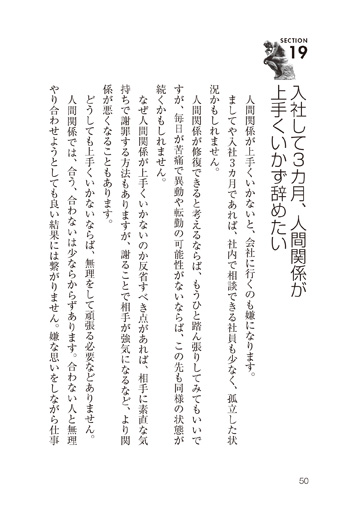 SECTION
19
入社して3カ月、人間関係が
上手くいかず辞めたい
人間関係が上手くいかないと、会社に行くのも嫌になります。
ましてや入社3カ月であれば、社内で相談できる社員も少なく、孤立した状
況かもしれません。
人間関係が修復できると考えるならば、もうひと踏ん張りしてみてもいいで
すが、毎日が苦痛で異動や転勤の可能性がないならば、この先も同様の状態が
続くかもしれません。
なぜ人間関係が上手くいかないのか反省すべき点があれば、相手に素直な気
持ちで謝罪する方法もありますが、謝ることで相手が強気になるなど、より関
係が悪くなることもあります。
どうしても上手くいかないならば、無理をして頑張る必要などありません。
人間関係では、合う、合わないは少なからずあります。合わない人と無理
やり合わせようとしても良い結果には繋がりません。嫌な思いをしながら仕事
50